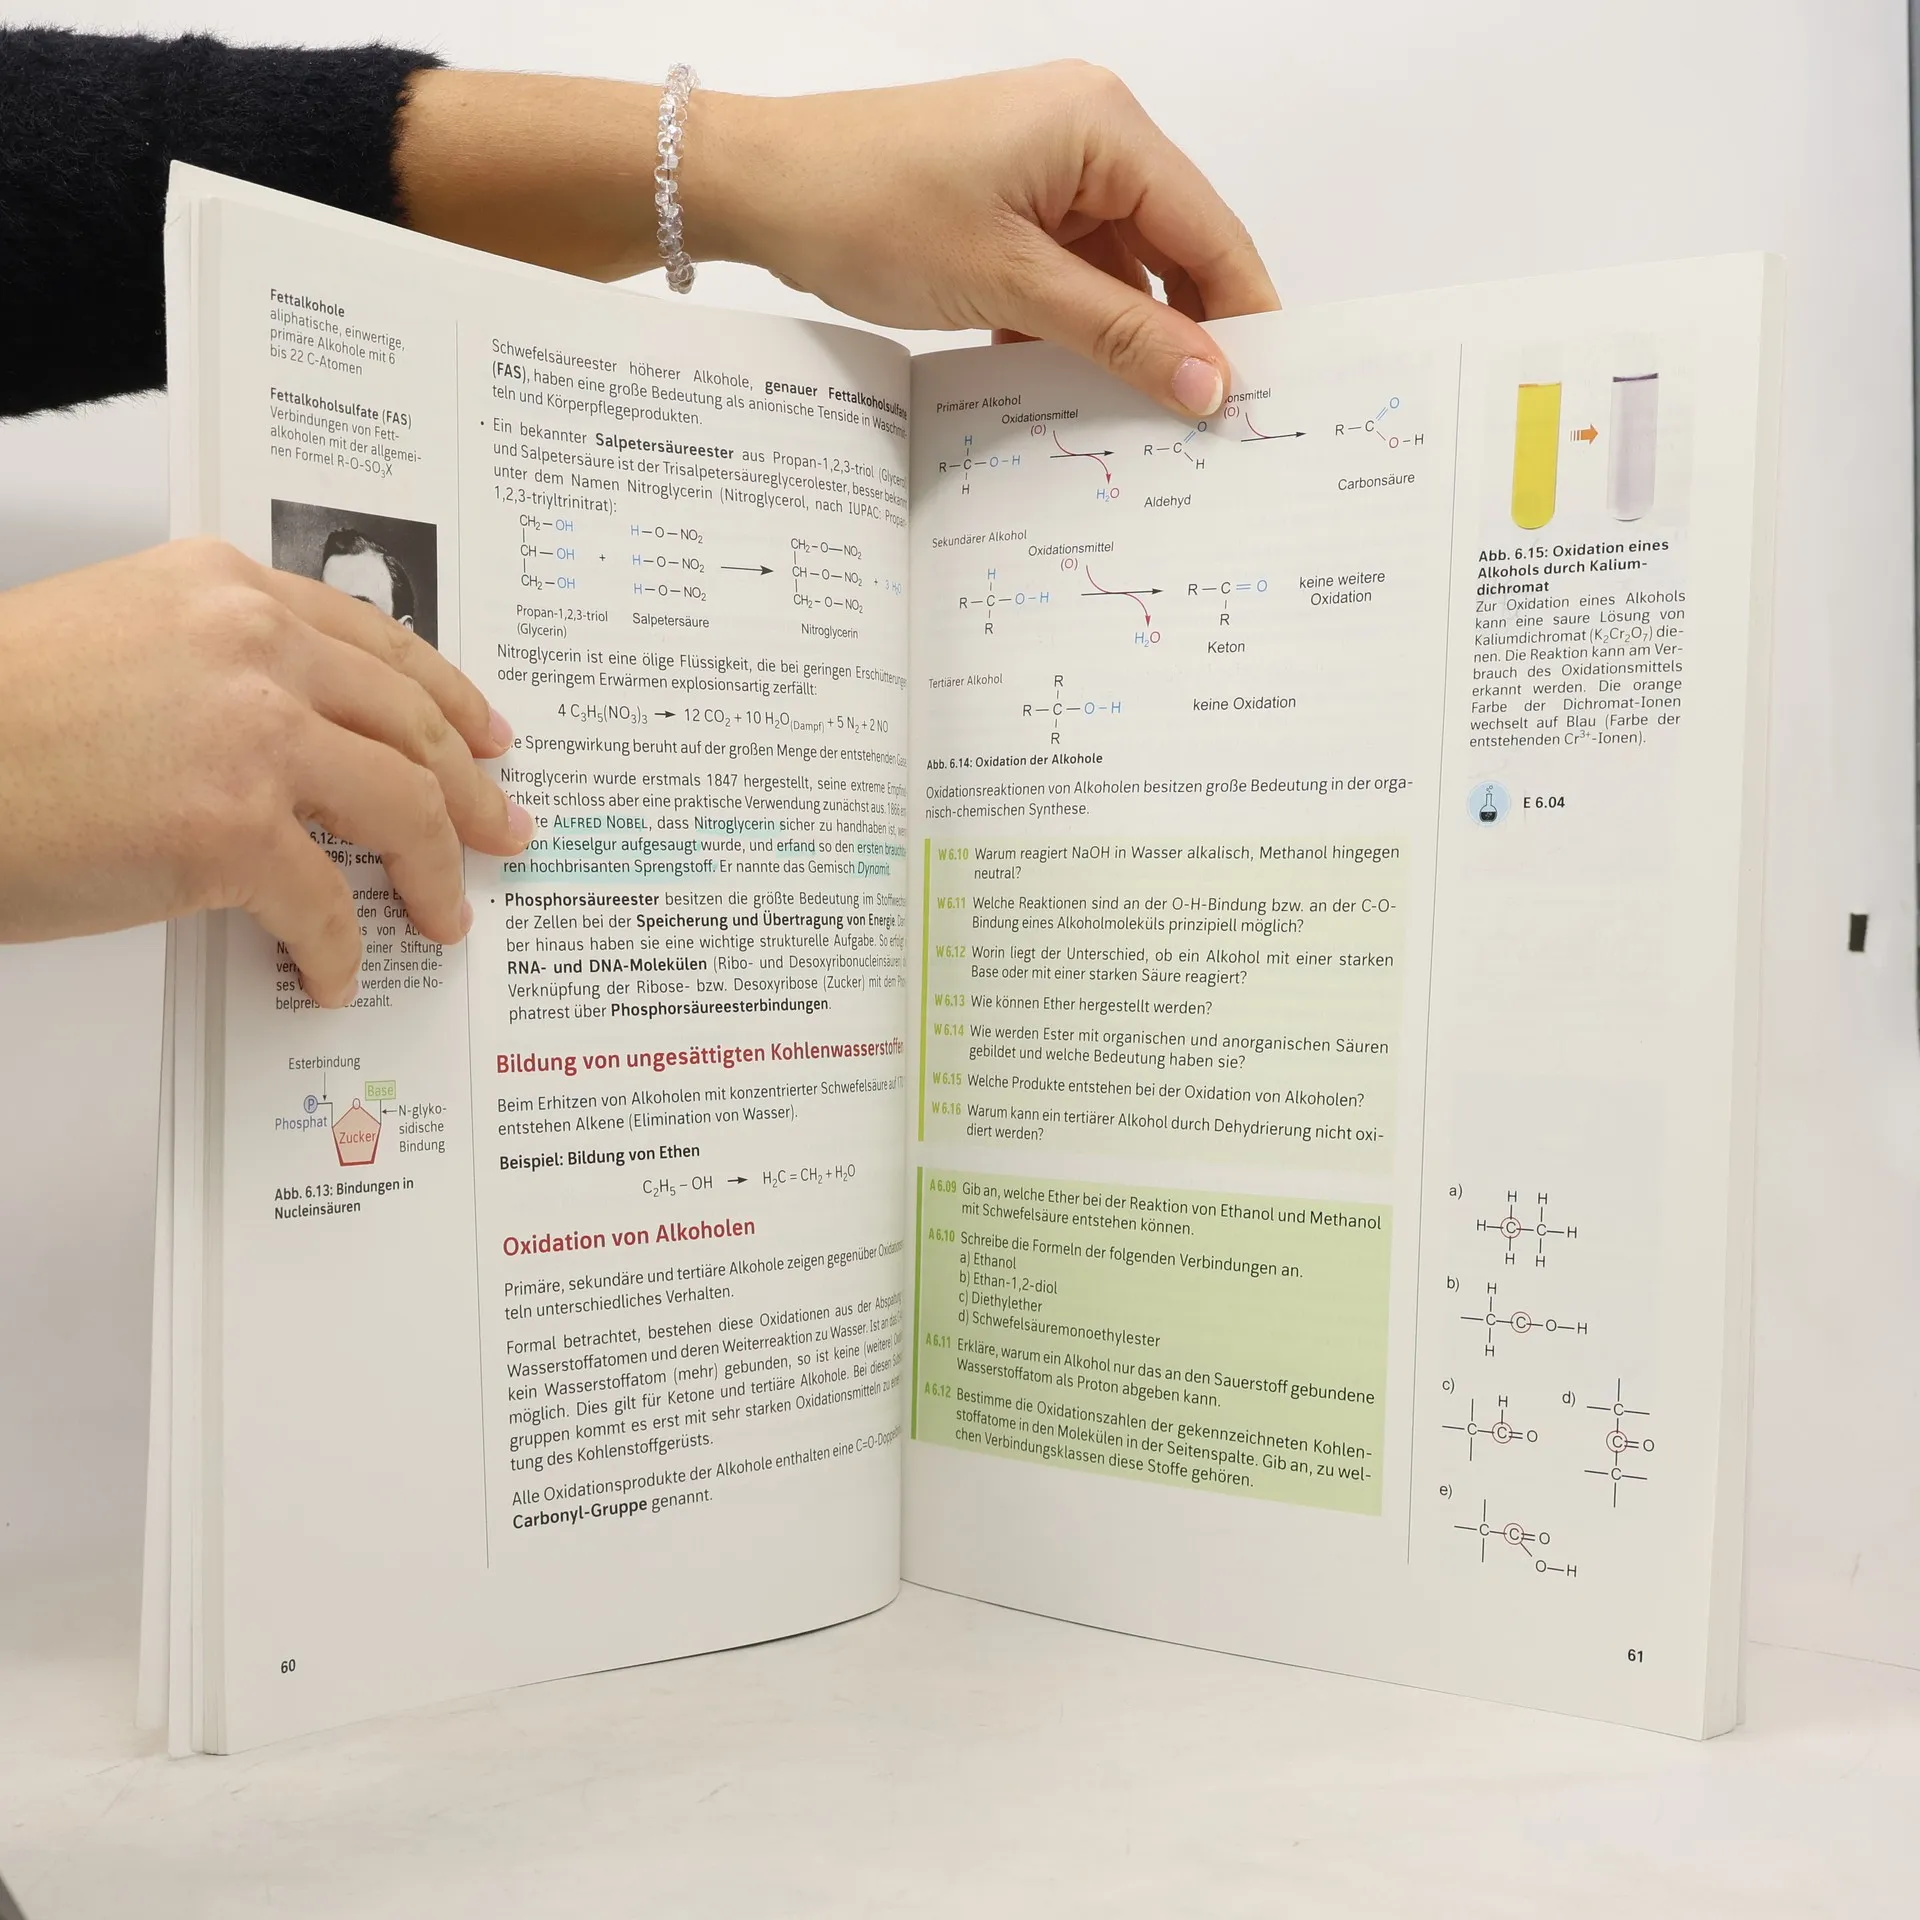 Fettalkohole
aliphatische, einwertige,
primäre Alkohole mit 6
bis 22 C-Atomen
Fettalkoholsulfate (FAS)
Verbindungen von Fett-
alkoholen mit der allgemei-
nen Formel R-O-SO₃X
6.12:
andere
den
von
einer Stiftung
den Zinsen die-
ses werden die No-
Esterbindung
P
Base
Phosphat
O
Zucker
N-glyko-
sidische
Bindung
Abb. 6.13: Bindungen in
Nucleinsäuren
60
Schwefelsäureester höherer Alkohole, genauer Fettalkoholsulfate
(FAS), haben eine große Bedeutung als anionische Tenside in Waschmit-
teln und Körperpflegeprodukten.
• Ein bekannter Salpetersäureester aus Propan-1,2,3-triol (Glycerol)
und Salpetersäure ist der Trisalpetersäureglycerolester, besser bekannt
unter dem Namen Nitroglycerin (Nitroglycerol, nach IUPAC: Propan-
1,2,3-triyltrinitrat):
CH₂–OH H–O–NO₂ CH₂–O–NO₂
CH–OH + H–O–NO₂ → CH–O–NO₂ + 3 H₂O
CH₂–OH H–O–NO₂ CH₂–O–NO₂
Propan-1,2,3-triol Salpetersäure Nitroglycerin
(Glycerin)
Nitroglycerin ist eine ölige Flüssigkeit, die bei geringen Erschütterungen
oder geringem Erwärmen explosionsartig zerfällt:
4 C₃H₅(NO₃)₃ → 12 CO₂ + 10 H₂O(Dampf) + 5 N₂ + 2 NO
Sprengwirkung beruht auf der großen Menge der entstehenden
Nitroglycerin wurde erstmals 1847 hergestellt, seine extreme
schloss aber eine praktische Verwendung zunächst aus.
ALFRED NOBEL, dass Nitroglycerin sicher zu handhaben ist,
von Kieselgur aufgesaugt wurde, und erfand so den ersten
ren hochbrisanten Sprengstoff. Er nannte das Gemisch Dynamit
• Phosphorsäureester besitzen die größte Bedeutung im
der Zellen bei der Speicherung und Übertragung von Energie.
ber hinaus haben sie eine wichtige strukturelle Aufgabe. So
RNA- und DNA-Molekülen (Ribo- und Desoxyribonucleinsäuren)
Verknüpfung der Ribose- bzw. Desoxyribose (Zucker) mit dem
phatrest über Phosphorsäureesterbindungen.
Bildung von ungesättigten Kohlenwasserstoffen
Beim Erhitzen von Alkoholen mit konzentrierter Schwefelsäure auf
entstehen Alkene (Elimination von Wasser).
Beispiel: Bildung von Ethen
C₂H₅ – OH → H₂C = CH₂ + H₂O
Oxidation von Alkoholen
Primäre, sekundäre und tertiäre Alkohole zeigen gegenüber
teln unterschiedliches Verhalten.
Formal betrachtet, bestehen diese Oxidationen aus der
Wasserstoffatomen und deren Weiterreaktion zu Wasser. Ist an
kein Wasserstoffatom (mehr) gebunden, so ist keine (weitere)
möglich. Dies gilt für Ketone und tertiäre Alkohole. Bei diesen
gruppen kommt es erst mit sehr starken Oxidationsmitteln zu
tung des Kohlenstoffgerüsts.
Alle Oxidationsprodukte der Alkohole enthalten eine
Carbonyl-Gruppe genannt.
Primärer Alkohol
Oxidationsmittel
(O)
(O)
H
R–C–O–H
H
H₂O
R–C
O
H
Aldehyd
R–C
O
O–H
Carbonsäure
Sekundärer Alkohol
Oxidationsmittel
(O)
H
R–C–O–H
R
H₂O
R–C=O
R
Keton
keine weitere
Oxidation
Tertiärer Alkohol
R
R–C–O–H
R
keine Oxidation
Abb. 6.14: Oxidation der Alkohole
Oxidationsreaktionen von Alkoholen besitzen große Bedeutung in der orga-
nisch-chemischen Synthese.
W 6.10 Warum reagiert NaOH in Wasser alkalisch, Methanol hingegen
neutral?
W 6.11 Welche Reaktionen sind an der O-H-Bindung bzw. an der C-O-
Bindung eines Alkoholmoleküls prinzipiell möglich?
W 6.12 Worin liegt der Unterschied, ob ein Alkohol mit einer starken
Base oder mit einer starken Säure reagiert?
W 6.13 Wie können Ether hergestellt werden?
W 6.14 Wie werden Ester mit organischen und anorganischen Säuren
gebildet und welche Bedeutung haben sie?
W 6.15 Welche Produkte entstehen bei der Oxidation von Alkoholen?
W 6.16 Warum kann ein tertiärer Alkohol durch Dehydrierung nicht oxi-
diert werden?
A 6.09 Gib an, welche Ether bei der Reaktion von Ethanol und Methanol
mit Schwefelsäure entstehen können.
A 6.10 Schreibe die Formeln der folgenden Verbindungen an.
a) Ethanol
b) Ethan-1,2-diol
c) Diethylether
d) Schwefelsäuremonoethylester
A 6.11 Erkläre, warum ein Alkohol nur das an den Sauerstoff gebundene
Wasserstoffatom als Proton abgeben kann.
A 6.12 Bestimme die Oxidationszahlen der gekennzeichneten Kohlen-
stoffatome in den Molekülen in der Seitenspalte. Gib an, zu wel-
chen Verbindungsklassen diese Stoffe gehören.
Abb. 6.15: Oxidation eines
Alkohols durch Kalium-
dichromat
Zur Oxidation eines Alkohols
kann eine saure Lösung von
Kaliumdichromat (K₂Cr₂O₇) die-
nen. Die Reaktion kann am Ver-
brauch des Oxidationsmittels
erkannt werden. Die orange
Farbe der Dichromat-Ionen
wechselt auf Blau (Farbe der
entstehenden Cr³⁺-Ionen).
E 6.04
a)
H H
H–C–C–H
H H
b)
H
–C–C–O–H
H
c)
H
–C–C=O
d)
–C–
C=O
–C–
e)
–C–C=O
O–H
61